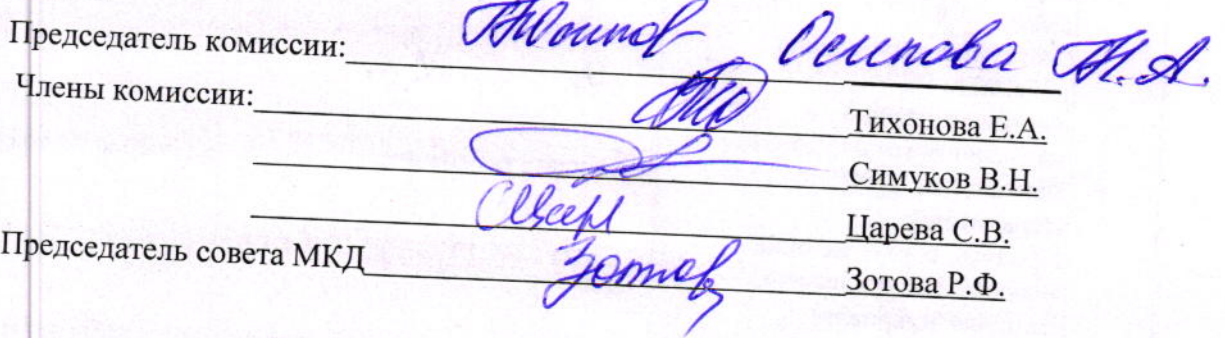 Председатель комиссии: Осипова
Члены комиссии: Тихонова Е.А.
Симуков В.Н.
Царева С.В.
Председатель совета МКД Зотова Р.Ф.